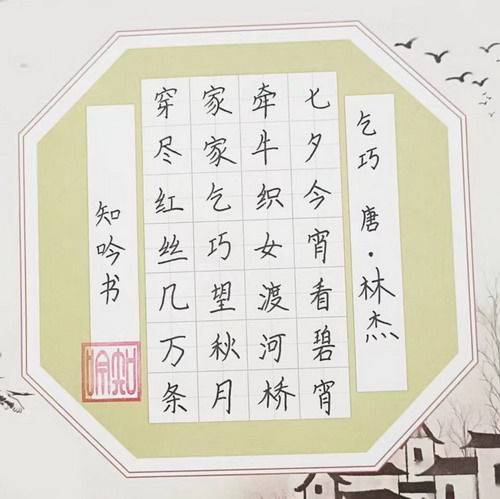 乞巧 唐·林杰
七夕今宵看碧宵
牵牛织女渡河桥
家家乞巧望秋月
穿尽红丝几万条
知吟书
知吟